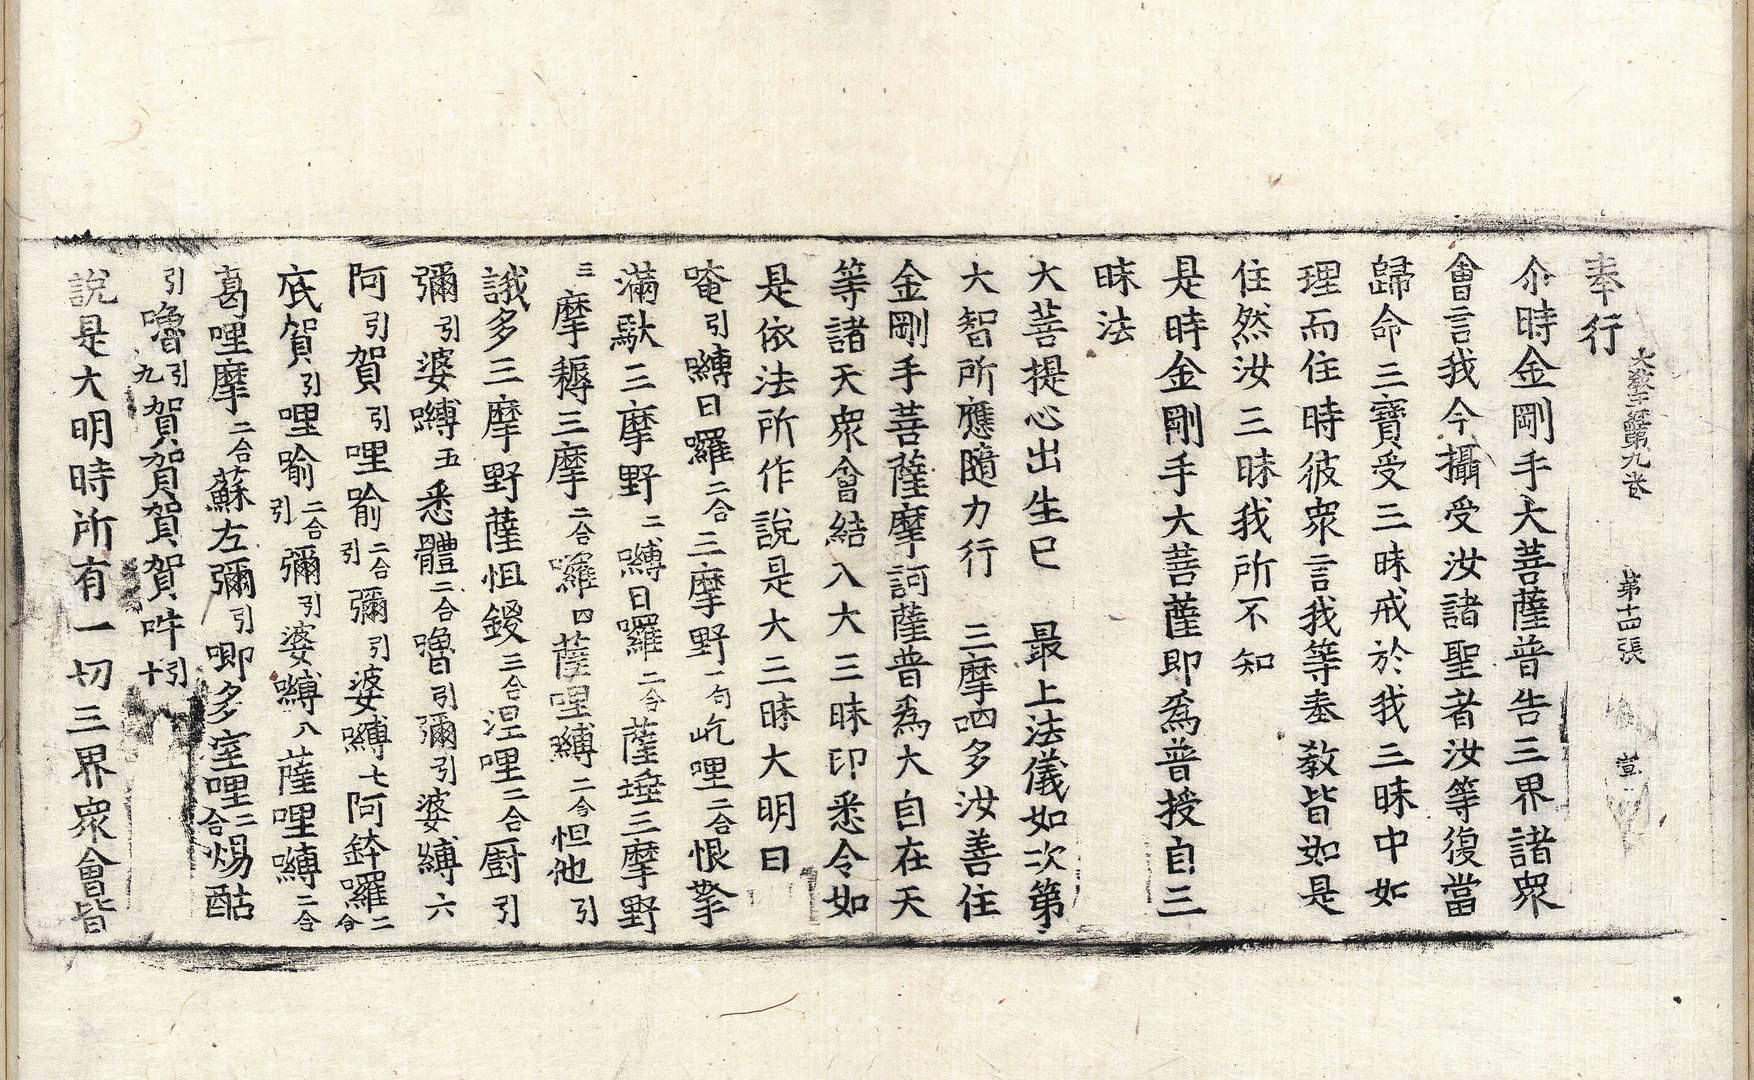 大教王經第九卷　第十四張
奉行
尒時金剛手大菩薩普告三界諸衆
會言我今攝受汝諸聖者汝等復當
歸命三寶受三昧戒於我三昧中如
理而住時彼衆言我等奉教皆如是
住然汝三昧我所不知
是時金剛手大菩薩即爲普授自三
昧法
大菩提心出生已　最上法儀如次第
大智所應隨力行　三摩呬多汝善住
金剛手菩薩摩訶薩普爲大自在天
等諸天衆會結入大三昧印悉令如
是依法所作說是大三昧大明曰
唵引嚩日囉二合三摩野一句屹哩二合恨拏
滿馱三摩野二嚩日囉二合薩埵三摩野
三摩耨三摩二合囉四薩哩嚩二合怛他引
誐多三摩野薩怛鍐三合涅哩二合厨引
彌引婆嚩五悉體二合嚕引彌引婆嚩六
阿引賀引哩踰二合引彌引婆嚩七阿鉢囉二合
底賀引哩踰二合引彌引婆嚩八薩哩嚩二合
葛哩摩二合蘇左彌引唧多室哩二合焬酤
引嚕引九賀賀賀賀吽引十
說是大明時所有一切三界衆會皆